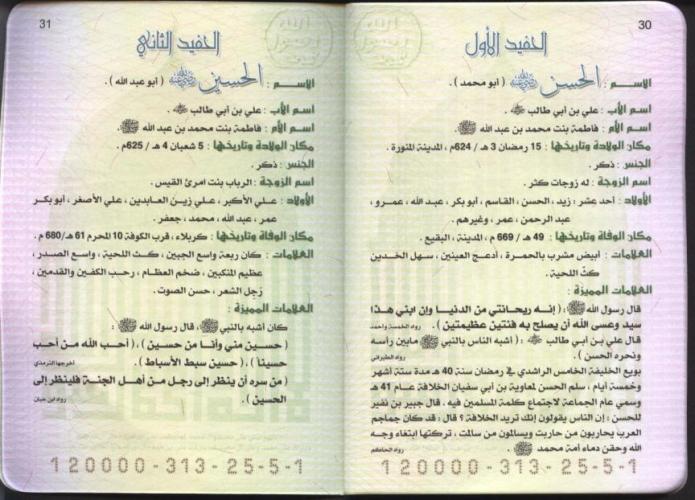 30
الحفيد الأول
الاســم : الحسن ﷺ ( أبو محمد ) .
اسم الأب : علي بن أبي طالب
اسم الأم : فاطمة بنت محمد بن عبد الله ﷺ .
مكان الولادة وتاريخها : 15 رمضان 3 هـ / 624م ، المدينة المنورة .
الجنس : ذكر .
اسم الزوجة : له زوجات كثر .
الأولاد : أحد عشر : زيد ، الحسن ، القاسم ، أبو بكر ، عبد الله ، عمرو ،
عبد الرحمن ، عمر ، وغيرهم .
مكان الوفاة وتاريخها : 49 هـ / 669 م ، المدينة ، البقيع .
العلامات : أبيض مشرب بالحمرة ، أدعج العينين ، سهل الخدين
كث اللحية .
العلامات المميزة :
قال رسول الله ﷺ : ( إنه ريحانتي من الدنيا وإن ابني هذا
سيد وعسى الله أن يصلح به فئتين عظيمتين ) . رواه الخمسة واحمد
قال علي بن أبي طالب : ( أشبه الناس بالنبي ﷺ مابين رأسه
ونحره الحسن ) . رواه الطبراني
بويع الخليفة الخامس الراشدي في رمضان سنة 40 هـ مدة ستة أشهر
وخمسة أيام ، سلم الحسن لمعاوية بن أبي سفيان الخلافة عام 41 هـ
وسمي عام الجماعة لاجتماع كلمة المسلمين فيه ، قال جبير بن نفير
للحسن : إن الناس يقولون إنك تريد الخلافة ؟ قال : قد كان جماجم
العرب يحاربون من حاربت ويسالمون من سالمت ، تركتها ابتغاء وجه
الله وحقن دماء أمة محمد ﷺ . رواه الحاكم
120000-313-25-5-1
31
الحفيد الثاني
الاســم : الحسين ( أبو عبد الله ) .
اسم الأب : علي بن أبي طالب .
اسم الأم : فاطمة بنت محمد بن عبد الله ﷺ .
مكان الولادة وتاريخها : 5 شعبان 4 هـ / 625م .
الجنس : ذكر .
اسم الزوجة : الرباب بنت امرئ القيس .
الأولاد : علي الأكبر ، علي زين العابدين ، علي الأصغر ، أبو بكر
عمر ، عبد الله ، محمد ، جعفر .
مكان الوفاة وتاريخها : كربلاء ، قرب الكوفة 10 المحرم 61 هـ/680 م .
العلامات : كان ربعة واسع الجبين ، كث اللحية ، واسع الصدر ،
عظيم المنكبين ، ضخم العظام ، رحب الكفين والقدمين ،
رجل الشعر ، حسن الصوت .
العلامات المميزة :
كان أشبه بالنبي ﷺ ، قال رسول الله ﷺ :
( حسين مني وأنا من حسين ) ، ( أحب الله من أحب
حسيناً ) ، ( حسين سبط الأسباط ) . اخرجها الترمذي
( من سره أن ينظر إلى رجل من أهل الجنة فلينظر إلى
الحسين ) . رواه ابن حبان
120000-313-25-5-1